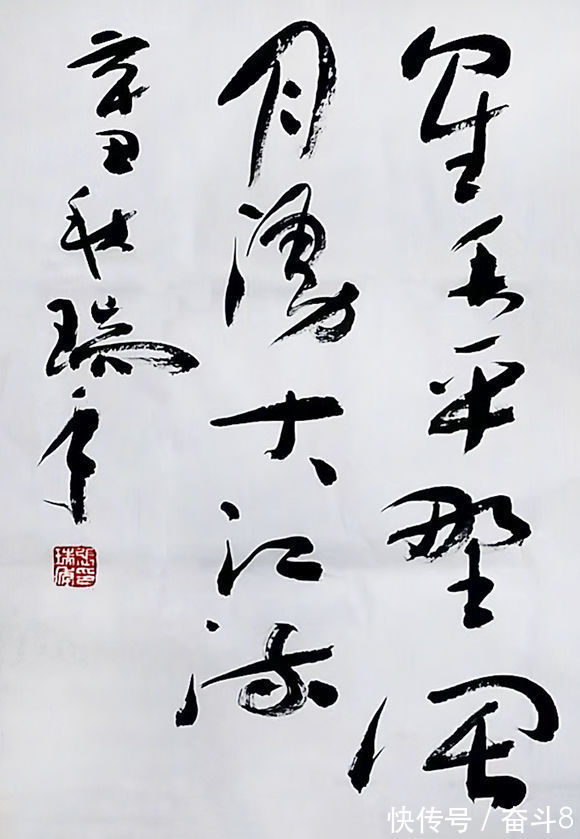 星垂平野阔
月湧大江流
辛丑秋瑞年
快传号 / 奋斗8